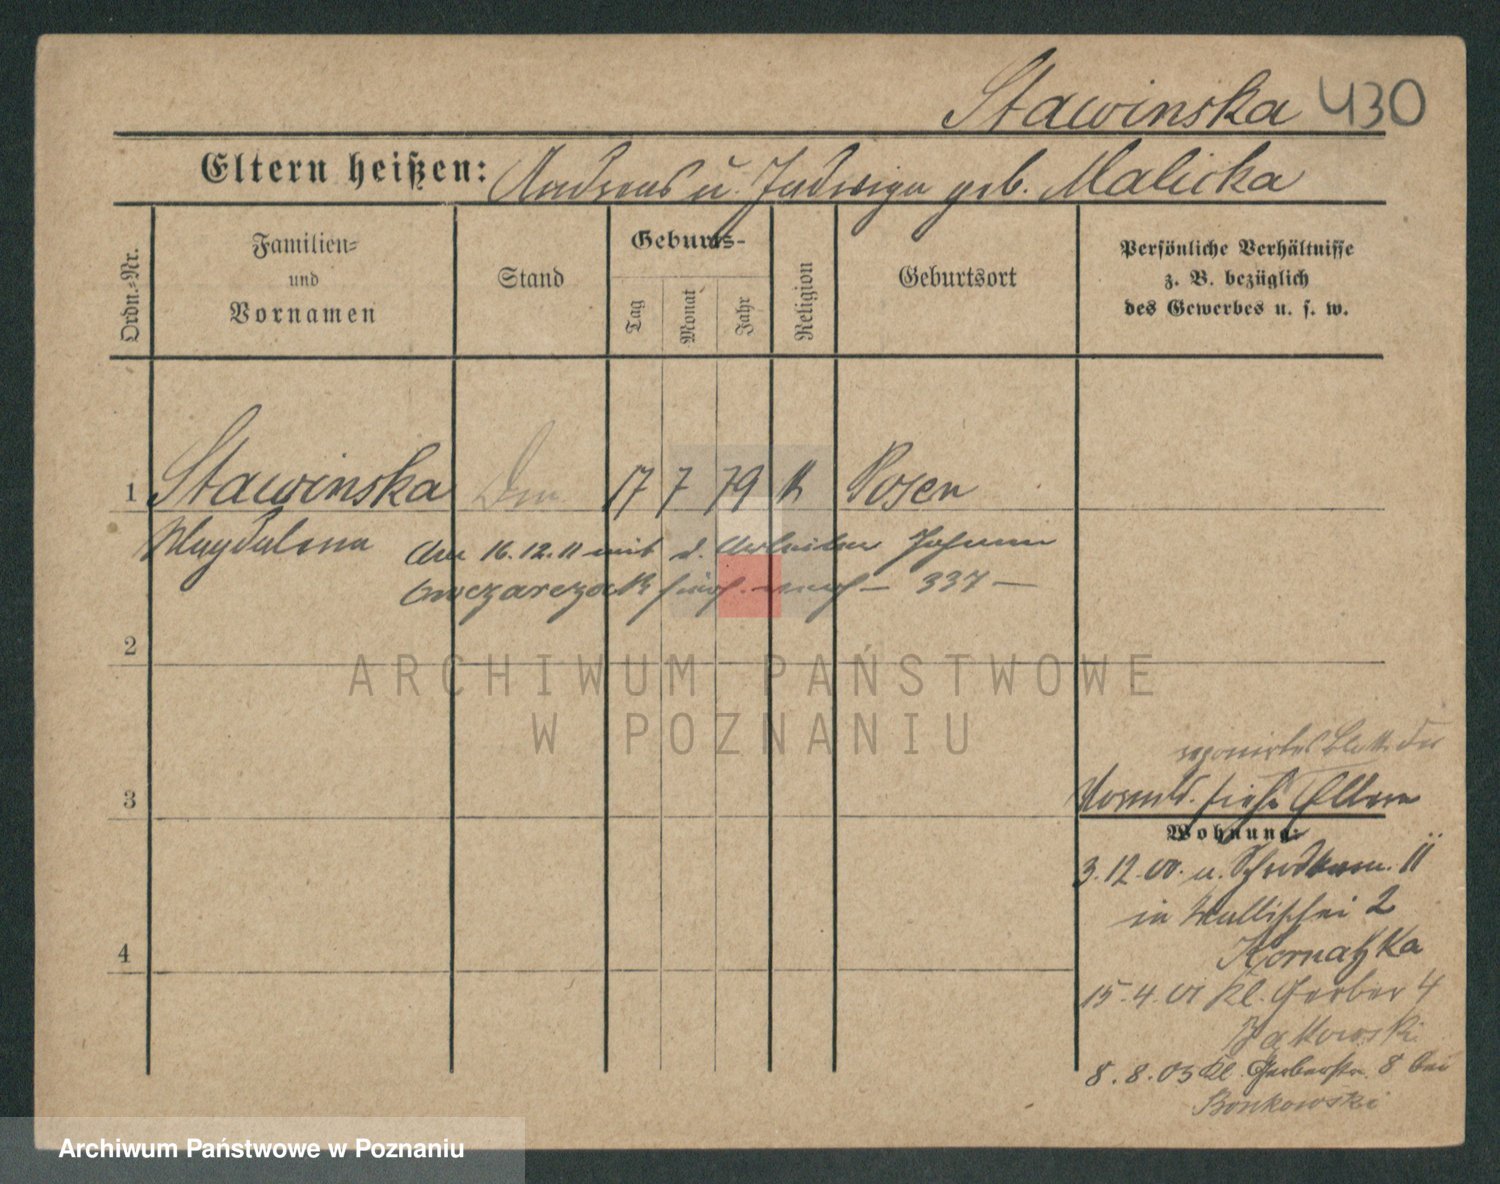 Stawinska 430
Eltern heißen: Andreas u. Jadwiga geb. Malicka
Ordn.-Nr.
Familien-
und
Vornamen
Stand
Geburts-
Tag
Monat
Jahr
Religion
Geburtsort
Persönliche Verhältnisse
z. B. bezüglich
des Gewerbes u. s. w.
1 Stawinska 17 7 79 k Posen
Magdalena
am 16.12.11 mit d. Arbeiter Johann
Owczarczack 337 —
2
ARCHIWUM PAŃSTWOWE
W POZNANIU
reponirtes Blatt der
3
siehe Eltern
Wohnung:
3.12.00. u. II
in Wallischei 2
4
Kornatzka
15.4.01 Kl. Gerber 4
Bąkowski
8.8.03 Kl. Gerberstr. 8 bei
Bonkowski
Archiwum Państwowe w Poznaniu